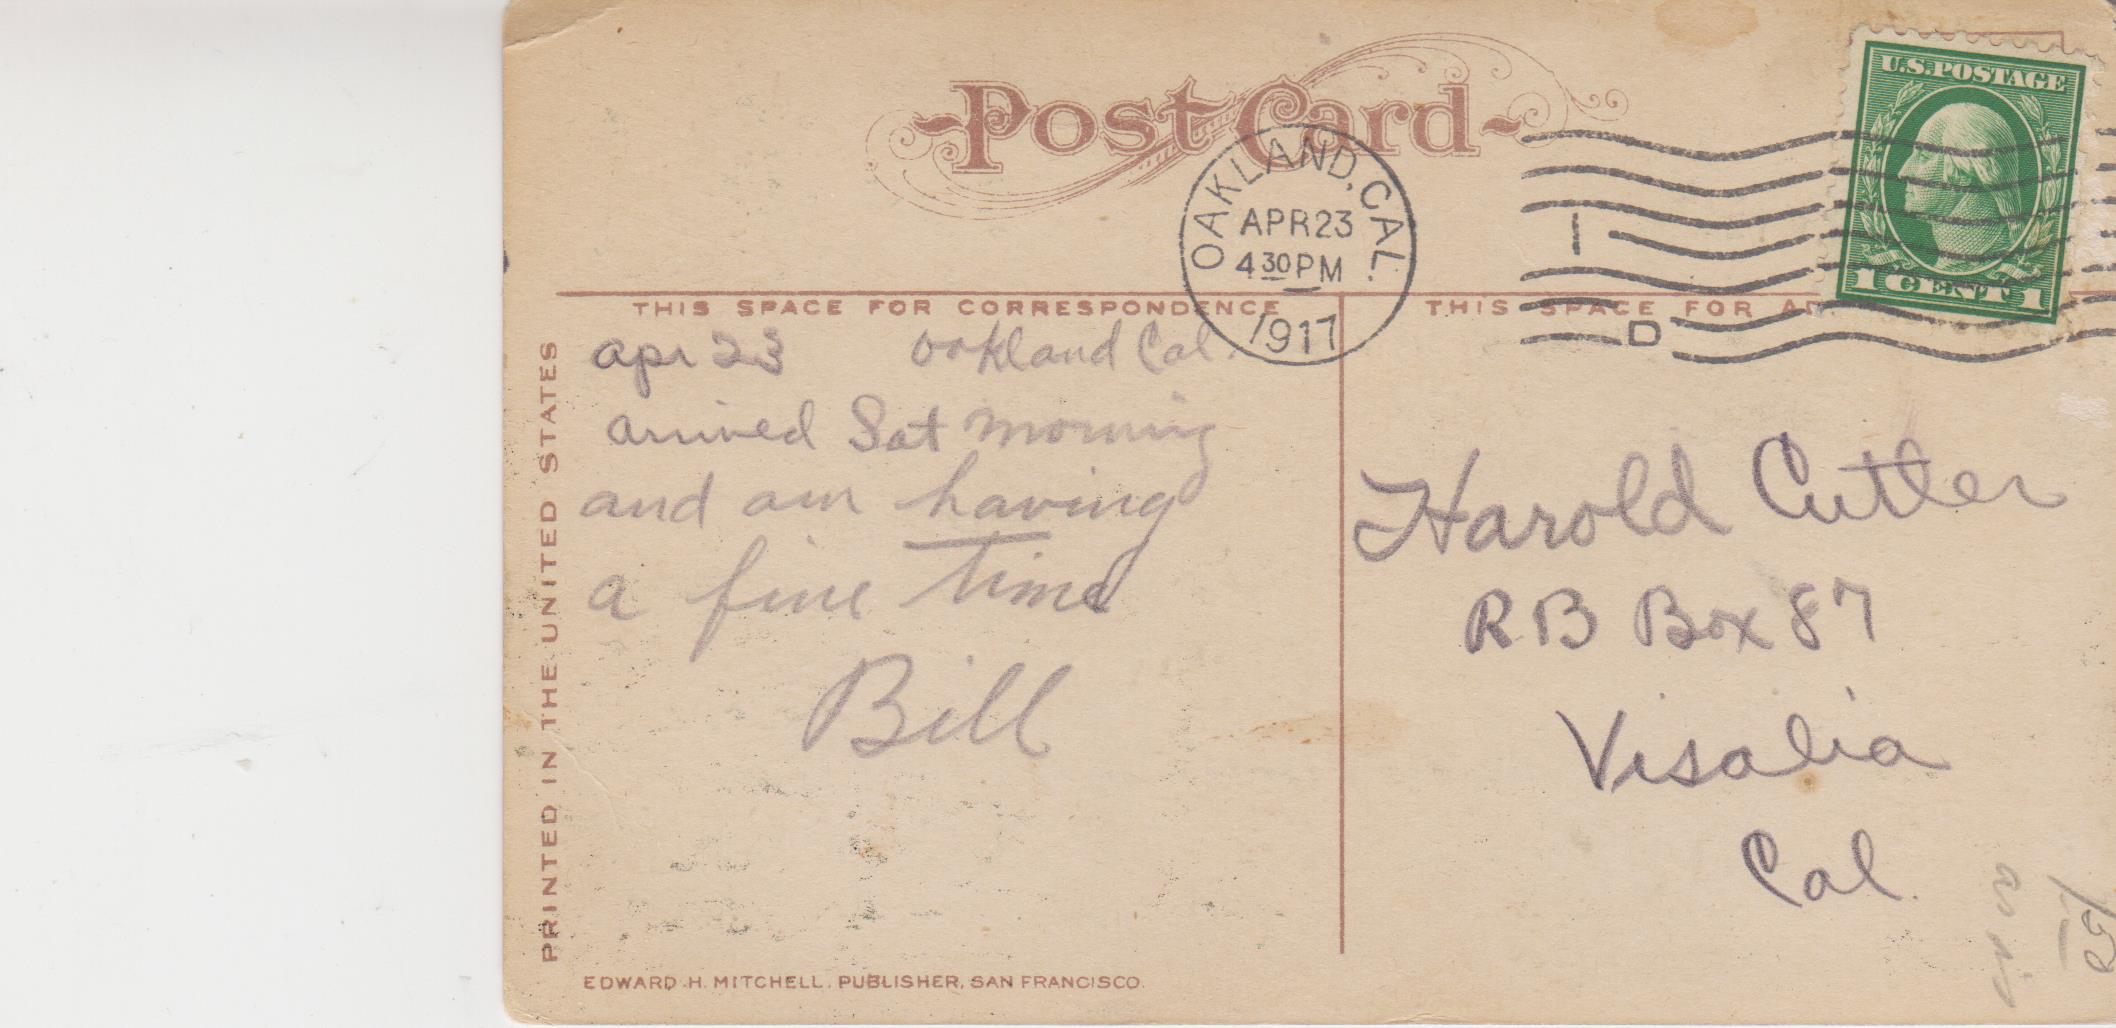 Post Card
U.S. POSTAGE
1 CENT 1
OAKLAND, CAL.
APR 23
4 30 PM
1917
1
D
THIS SPACE FOR CORRESPONDENCE
THIS SPACE FOR AD
PRINTED IN THE UNITED STATES
apr 23 Oakland Cal.
arrived Sat morning
and am having
a fine time
Bill
Harold Cutler
R B Box 87
Visalia
Cal.
as is
EDWARD H. MITCHELL, PUBLISHER, SAN FRANCISCO.